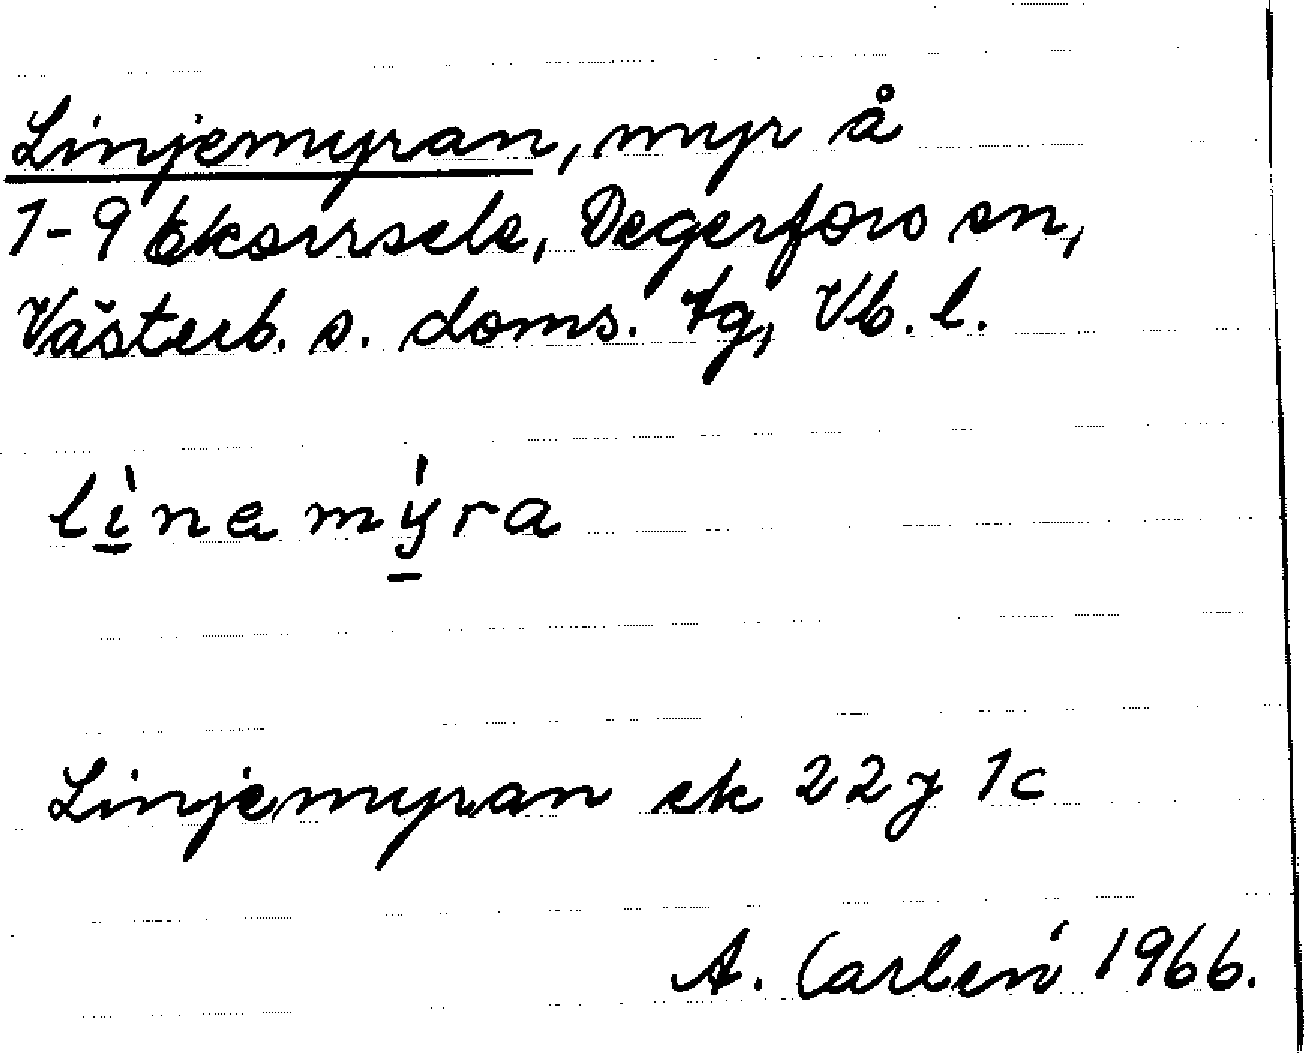 Linjemyran, myr å
1-9 Ekorrsele, Degerfors sn,
Västerb. s. doms. tg, Vb. l.
lìnamýra
Linjemyran ek 22 J 1c
A. Carlén 1966.